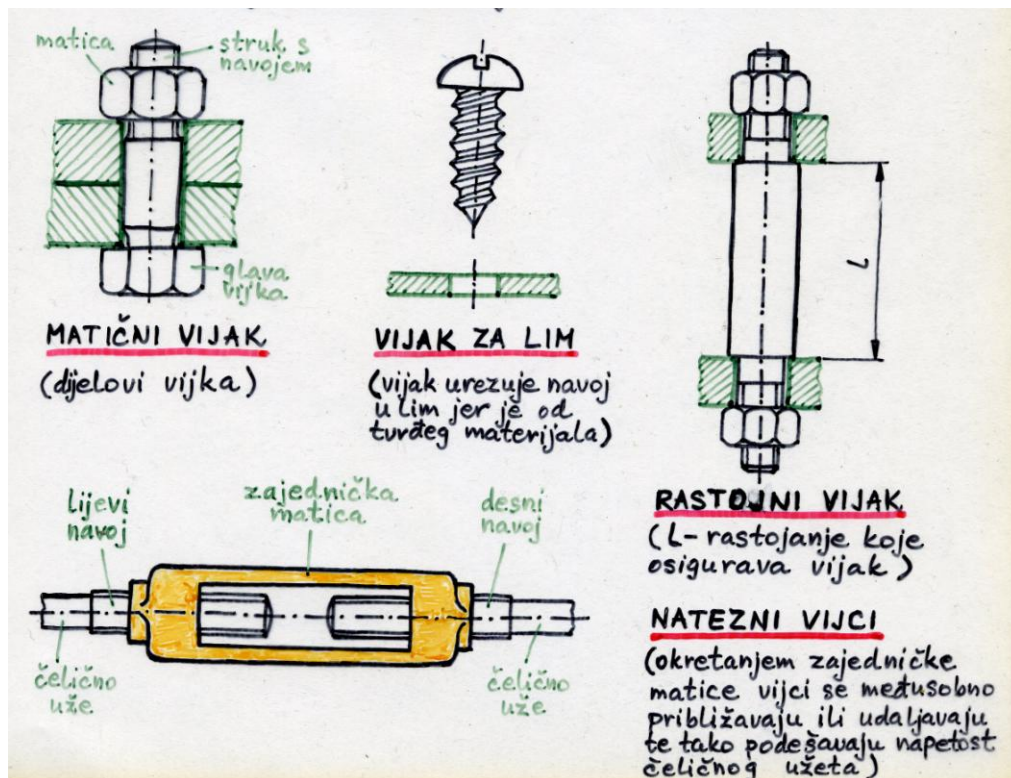 matica
struk s
navojem
glava
vijka
MATIČNI VIJAK
(dijelovi vijka)
VIJAK ZA LIM
(vijak urezuje navoj
u lim jer je od
tvrđeg materijala)
L
RASTOJNI VIJAK
(L-rastojanje koje
osigurava vijak)
lijevi
navoj
zajednička
matica
desni
navoj
čelično
uže
čelično
uže
NATEZNI VIJCI
(okretanjem zajedničke
matice vijci se međusobno
približavaju ili udaljavaju
te tako podešavaju napetost
čeličnog užeta)